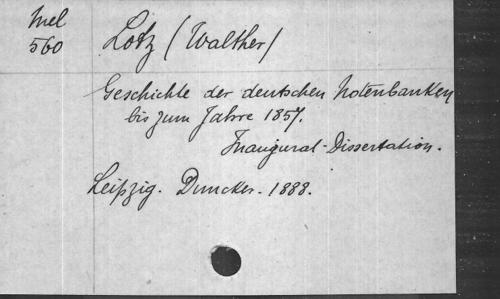 Mel
560
Lotz (Walther)
Geschichte der deutschen Notenbanken
bis zum Jahre 1857.
Inaugural-Dissertation.
Leipzig. Duncker. 1888.